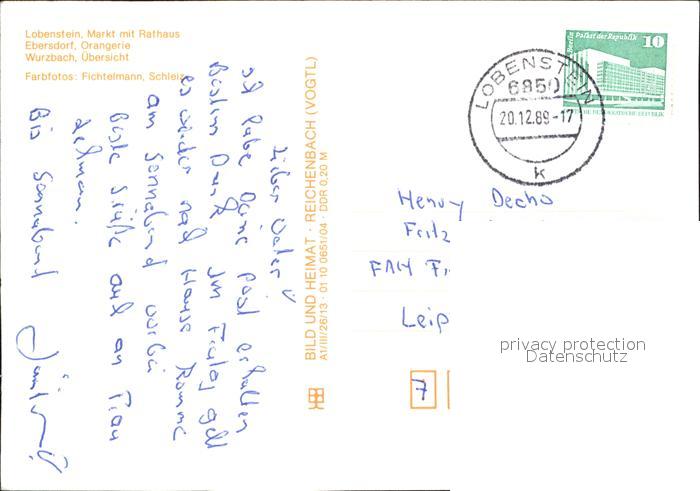 Lobenstein, Markt mit Rathaus
Ebersdorf, Orangerie
Wurzbach, Übersicht
Farbfotos: Fichtelmann, Schleiz
Lieber
ich habe Deine Post erhalten
Besten Dank. Im Freitag geht
es wieder nach Hause komme
am Sonnabend vorbei
liebe Grüße auch an Frau
Lehmann.
Bis Sonnabend
BILD UND HEIMAT · REICHENBACH (VOGTL)
A1/III/26/13 · 01 10 0651/04 · DDR 0,20 M
Berlin Palast der Republik
10
DEUTSCHE DEMOKRATISCHE REPUBLIK
LOBENSTEIN
6850
20.12.89-17
k
Henry
Fritz
Leip
7
privacy protection
Datenschutz